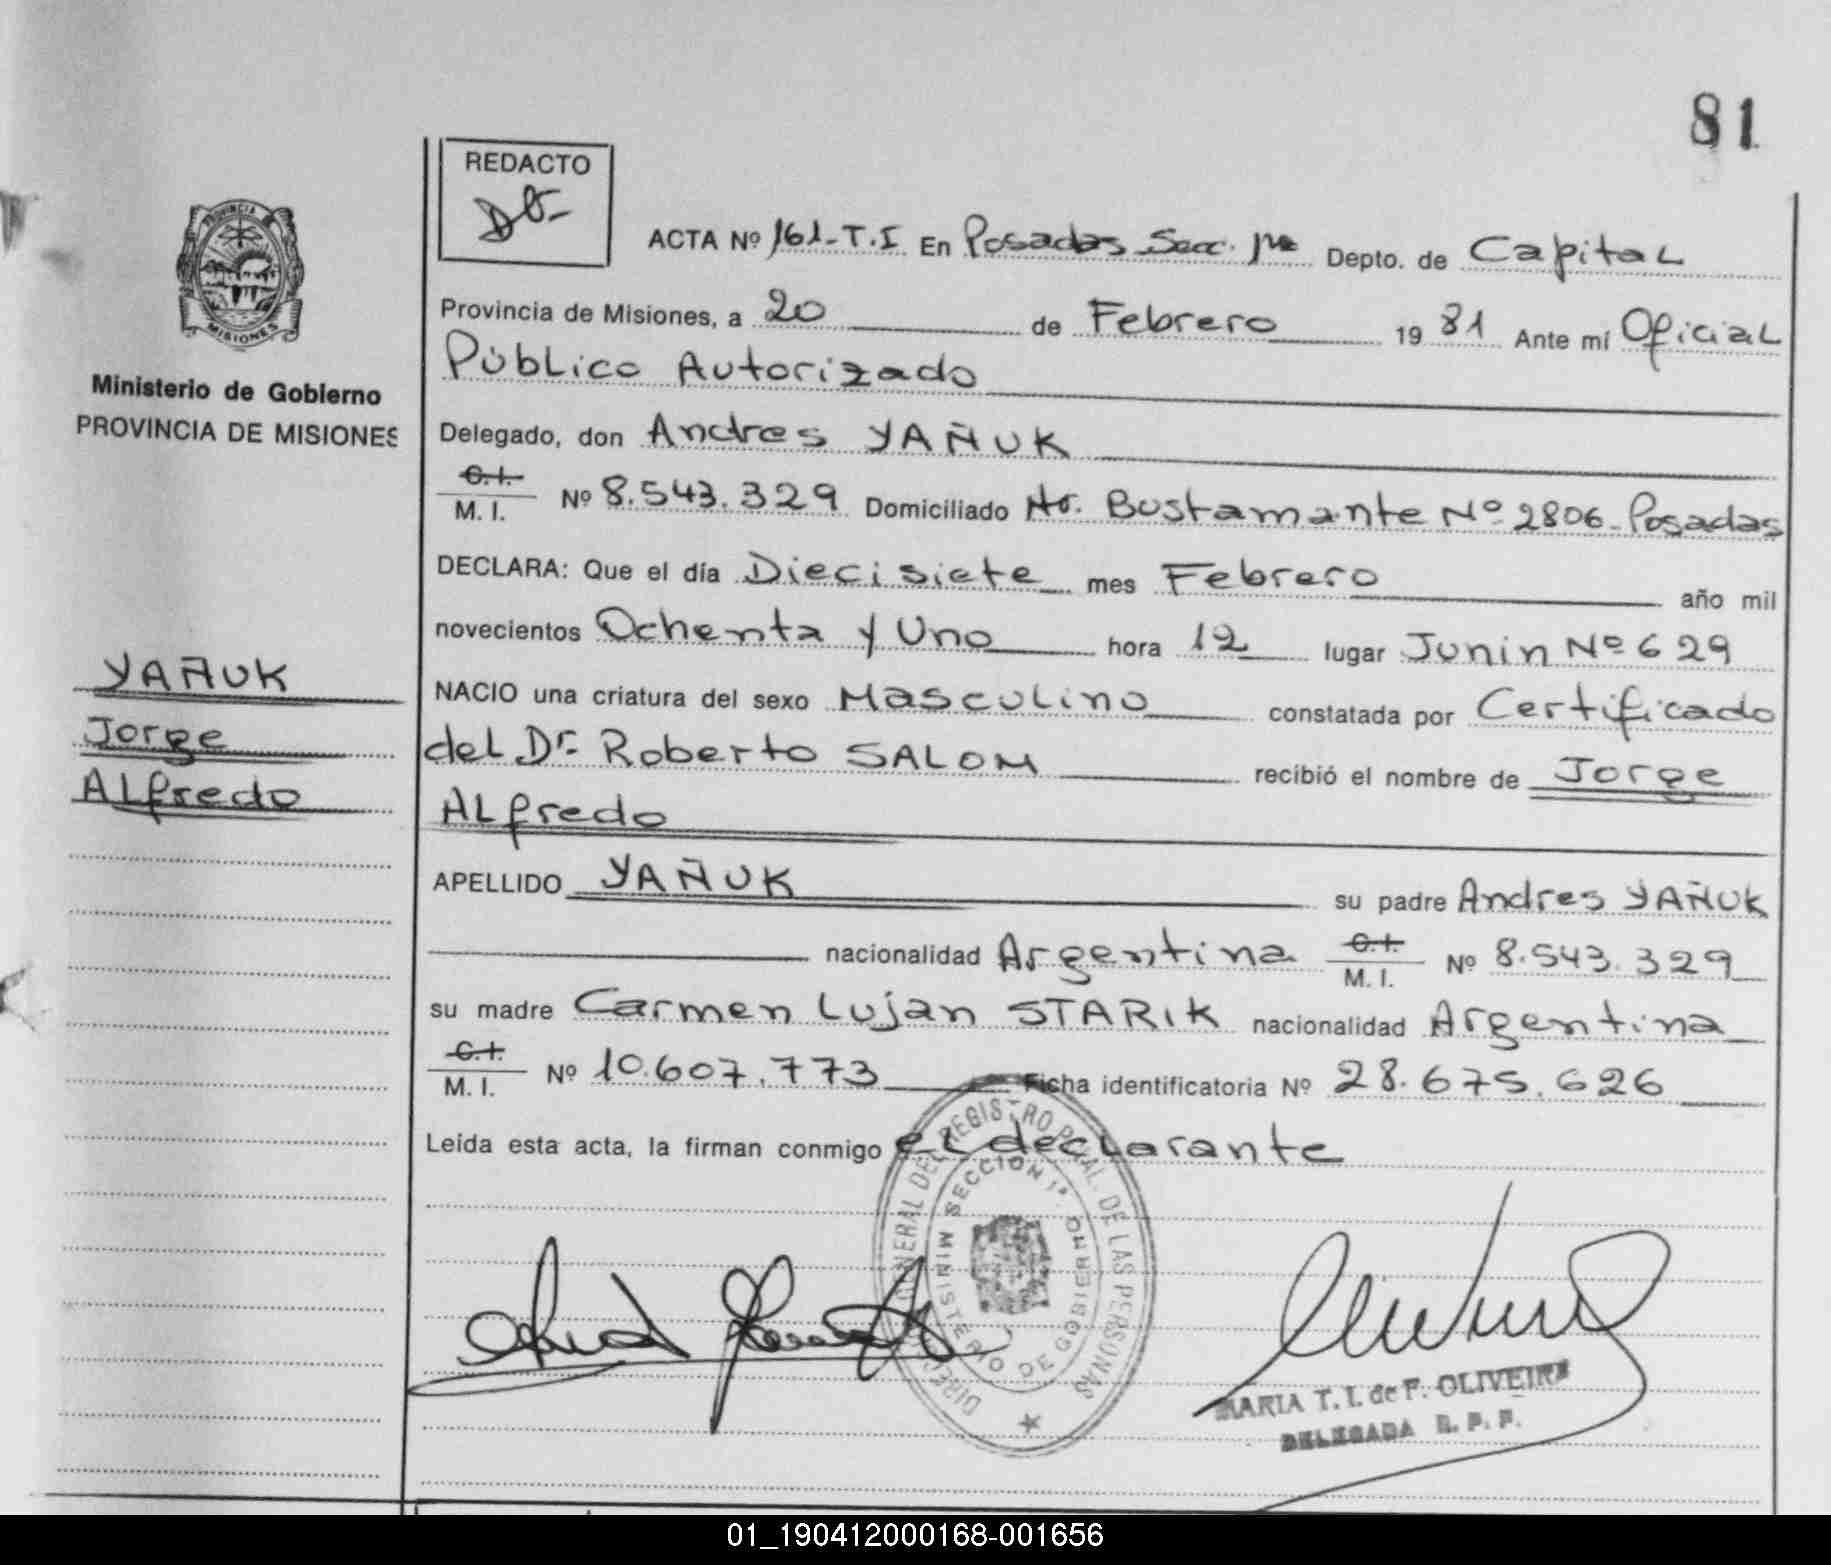 81
REDACTO
PROVINCIA DE
MISIONES
Ministerio de Gobierno
PROVINCIA DE MISIONES
YAÑUK
Jorge
Alfredo
ACTA Nº 161-T.I En Posadas Secc. 1ra Depto. de Capital
Provincia de Misiones, a 20 de Febrero 1981 Ante mí Oficial
Público Autorizado
Delegado, don Andres YAÑUK
C.I.
M. I. Nº 8.543.329 Domiciliado Av. Bustamante Nº 2806-Posadas
DECLARA: Que el día Diecisiete mes Febrero año mil
novecientos Ochenta y Uno hora 12 lugar Junin Nº 629
NACIO una criatura del sexo Masculino constatada por Certificado
del Dr. Roberto SALOM recibió el nombre de Jorge
Alfredo
APELLIDO YAÑUK su padre Andres YAÑUK
nacionalidad Argentina C.I. M. I. Nº 8.543.329
su madre Carmen Lujan STARIK nacionalidad Argentina
C.I.
M. I. Nº 10.607.773 Ficha identificatoria Nº 28.675.626
Leída esta acta, la firman conmigo el declarante
DIRECCION GENERAL DEL REGISTRO PCIAL. DE LAS PERSONAS
SECCION 1ª.
MINISTERIO DE GOBIERNO
MARIA T. I. de F. OLIVEIRA
DELEGADA R. P. P.
01_190412000168-001656